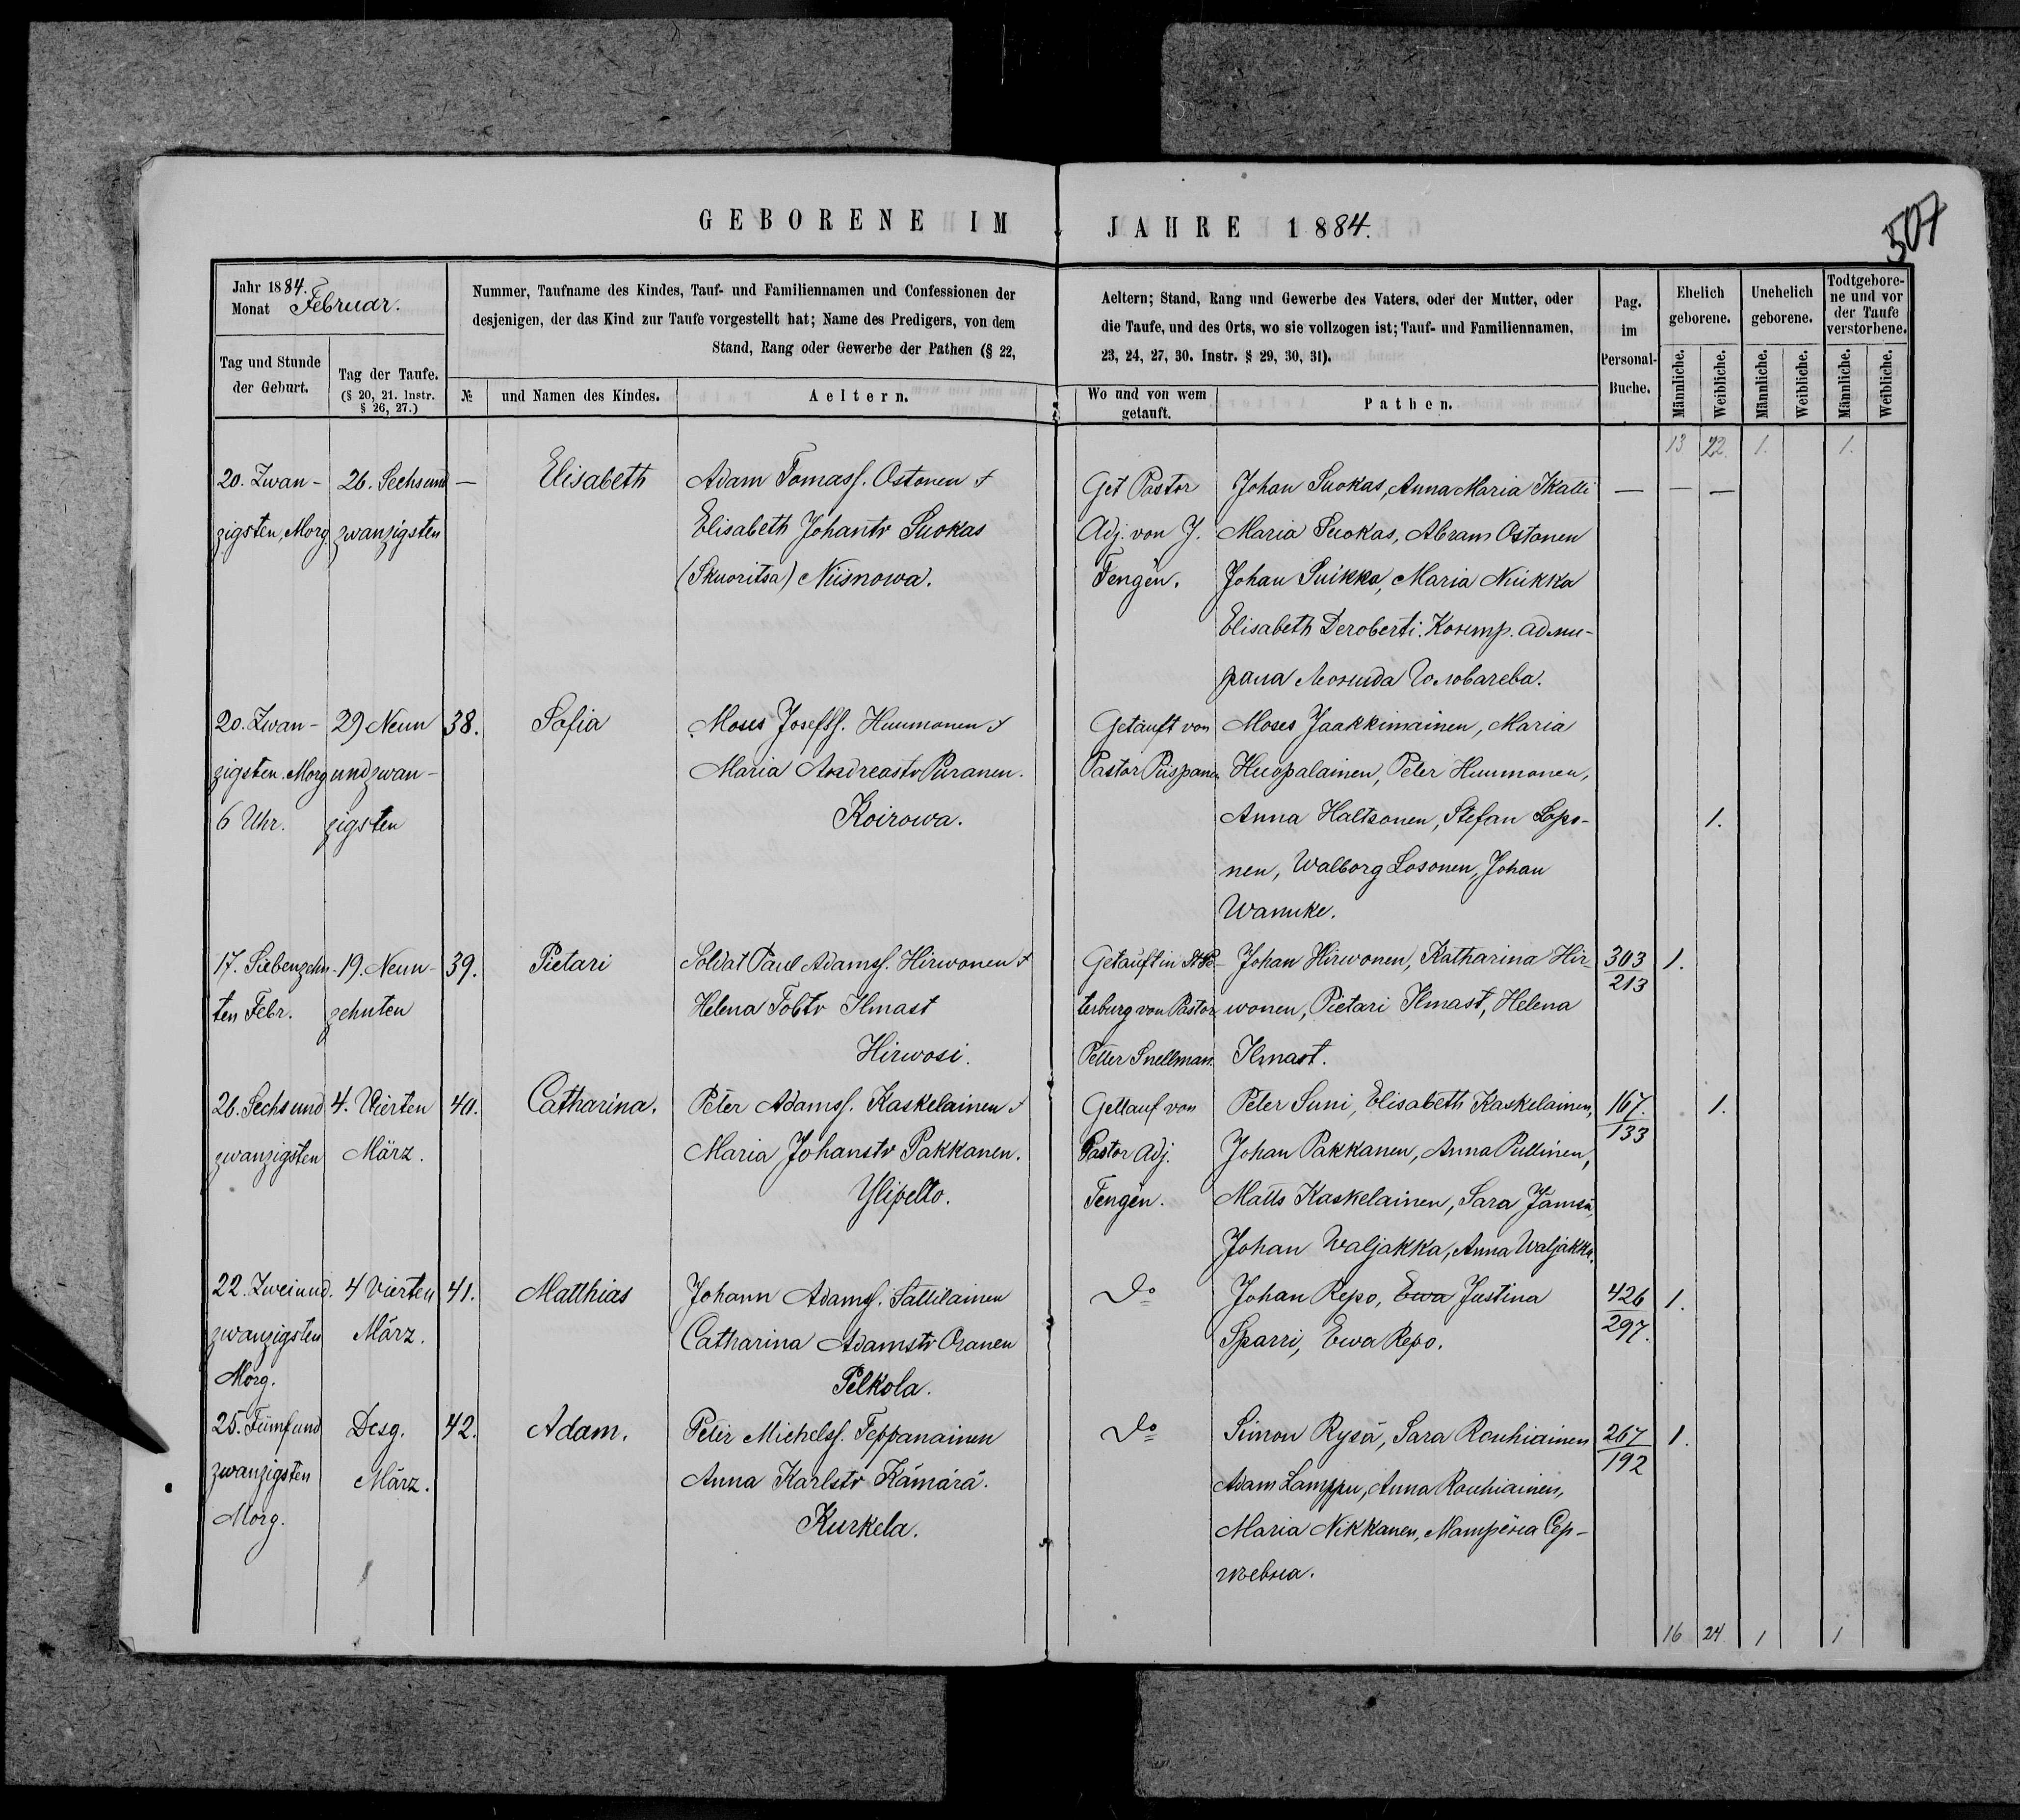 GEBORENE IM JAHRE 1884.
507
Jahr 1884.
Monat Februar.
Nummer, Taufname des Kindes, Tauf- und Familiennamen und Confessionen der
desjenigen, der das Kind zur Taufe vorgestellt hat; Name des Predigers, von dem
Stand, Rang oder Gewerbe der Pathen (§ 22,
Aeltern; Stand, Rang und Gewerbe des Vaters, oder der Mutter, oder
die Taufe, und des Orts, wo sie vollzogen ist; Tauf- und Familiennamen,
23, 24, 27, 30. Instr. § 29, 30, 31).
Pag.
im
Personal-
Buche.
Ehelich
geborene.
Unehelich
geborene.
Todtgebore-
ne und vor
der Taufe
verstorbene.
Tag und Stunde
der Geburt.
Tag der Taufe.
(§ 20, 21. Instr.
§ 26, 27.)
№
und Namen des Kindes.
Aeltern.
Wo und von wem
getauft.
Pathen.
Männliche.
Weibliche.
Männliche.
Weibliche.
Männliche.
Weibliche.
13 22. 1. 1.
20. Zwan-
zigsten, Morg.
26. Sechsund
zwanzigsten
—
Elisabeth
Adam Tomass. Ostonen +
Elisabeth Johantr Suokas
(Skuoritsa) Niisnowa.
Get Pastor
Adj. von J.
Tengén.
Johan Suokas, Anna Maria Ikalli
Maria Suokas, Abram Ostonen
Johan Suikka, Maria Niukka
Elisabeth Deroberti.
— — —
20. Zwan-
zigsten. Morg
6 Uhr.
29 Neun
und zwan-
zigsten
38.
Sofia
Moses Josefss. Huumonen +
Maria Andreastr Puranen.
Koirowa.
Getauft von
Pastor Piispanen
Moses Jaakkimainen, Maria
Huopalainen, Peter Huumonen,
Anna Haltsonen, Stefan Lopo-
nen, Walborg Losonen, Johan
Wanuke.
1.
17. Siebenzehn-
ten Febr.
19. Neun-
zehnten
39.
Pietari
Soldat Paul Adamss. Hirwonen +
Helena Tobtr Ilmast
Hirwosi.
Getauft in St Pe-
terburg von Pastor
Petter Snellman.
Johan Hirwonen, Katharina Hir-
wonen, Pietari Ilmast, Helena
Ilmast.
303
213
1.
26. Sechsund
zwanzigsten
4. Vierten
März.
40.
Catharina.
Peter Adamss. Kaskelainen +
Maria Johanstr Pakkanen.
Ylipelto.
Gettauf von
Pastor Adj.
Tengén.
Peter Suni, Elisabeth Kaskelainen,
Johan Pakkanen, Anna Pullinen,
Matts Kaskelainen, Sara Jämsä,
Johan Waljakka, Anna Waljakka.
167.
133
1.
22. Zweiund.
zwanzigsten
Morg.
4 Vierten
März.
41.
Matthias
Johann Adamss. Sallilainen
Catharina Adamstr Oranen
Pelkola.
Do
Johan Repo, Ewa Justina
Sparri, Ewa Repo.
426
297.
1.
25. Fünfund
zwanzigsten
Morg.
Desg.
März.
42.
Adam.
Peter Michelss. Teppanainen
Anna Karlstr Kämärä.
Kurkela.
Do
Simon Rysä, Sara Rouhiainen
Adam Lamppu, Anna Rouhiainen,
Maria Nikkanen,
267
192
1.
16 24 1 1